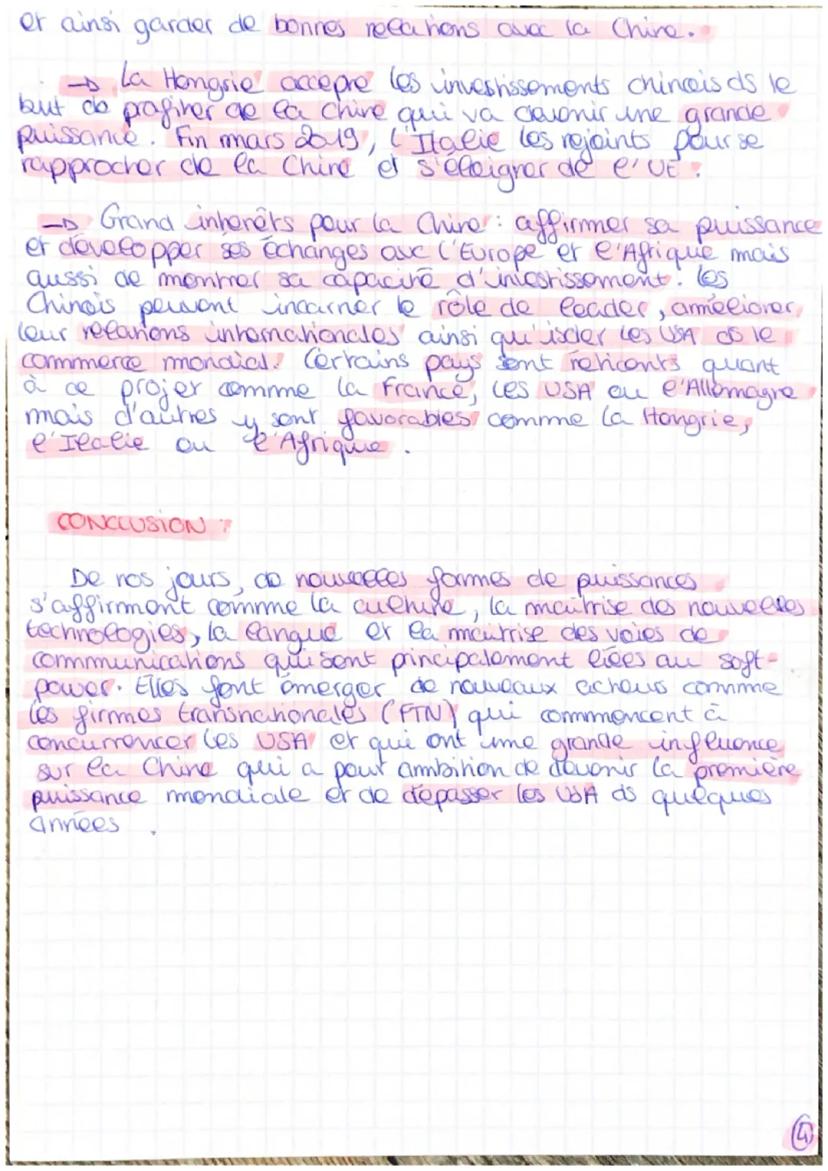 et ainsi garder de bonnes relations avec la Chine.
→ La Hongrie accepte les investissements chinois ds le
but de profiter de la Chine qui va devenir une grande
puissance. Fin mars 2019, l'Italie les rejoints pour se
rapprocher de la Chine et s'éloigner de l'UE.
→ Grand intérêts pour la Chine : affirmer sa puissance
et développer ses échanges avc l'Europe et l'Afrique mais
aussi de montrer sa capacité d'investissement. Les
Chinois peuvent incarner le rôle de leader, améliorer
leur relations internationales ainsi qu'isoler les USA ds le
commerce mondial. Certains pays sont réticents quant
à ce projet comme la France, les USA ou l'Allemagne
mais d'autres y sont favorables comme la Hongrie,
l'Italie ou l'Afrique.
CONCLUSION :
De nos jours, de nouvelles formes de puissances
s'affirment comme la culture, la maîtrise des nouvelles
technologies, la langue et la maîtrise des voies de
communications qui sont principalement liées au soft-
power. Elles font émerger de nouveaux acteurs comme
les firmes transnationales (FTN) qui commencent à
concurrencer les USA et qui ont une grande influence
sur la Chine qui a pour ambition de devenir la première
puissance mondiale et de dépasser les USA ds quelques
années.
4